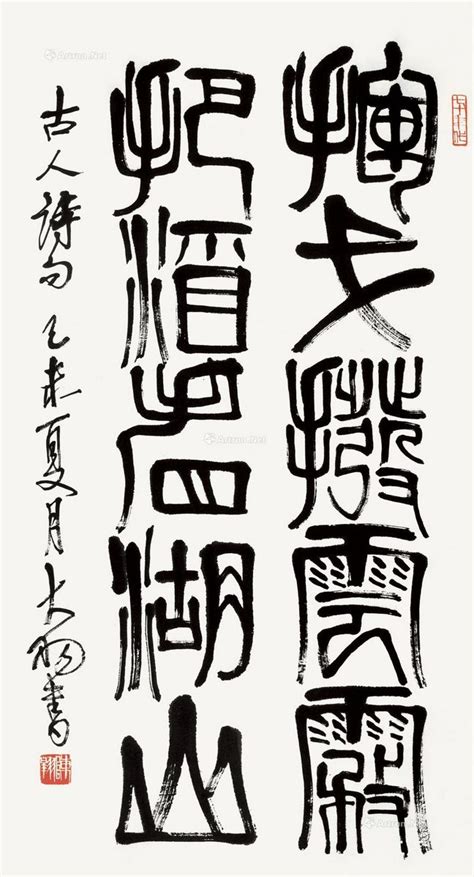 揮戈撥雲霧
把酒看湖山
古人詩句乙未夏月大羽書
Artron.Net